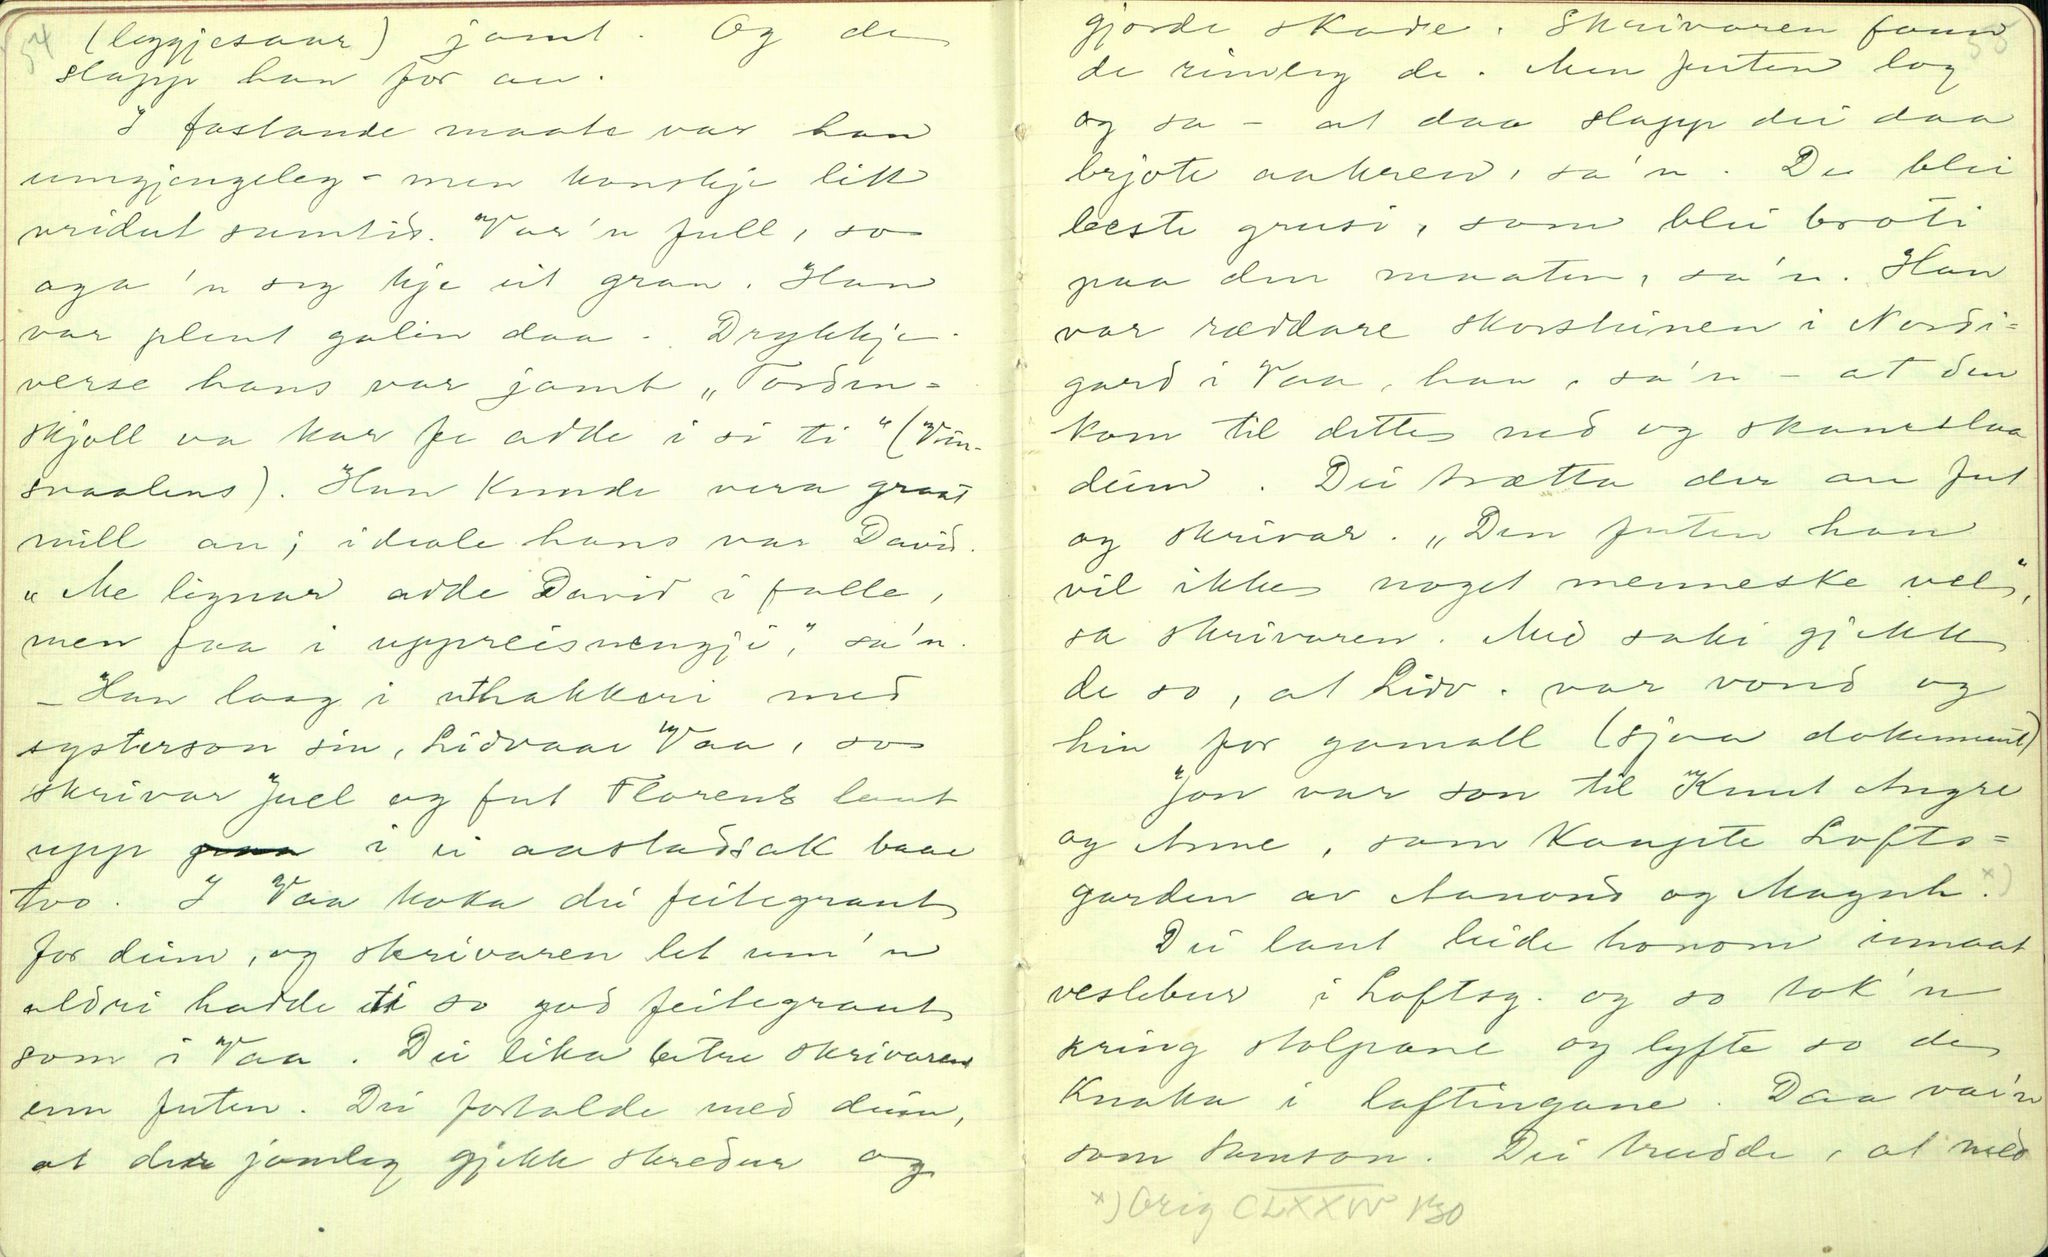 54
(leggjesaar) jamt. Og de
slapp han for au.
I fastande maate var han
umgjengeleg - men kanskje litt
vridut sumtid. Var'n full, so
aga'n seg kje eit gran. Han
var plent galin daa. Drykkje-
verse hans var jamt „Tordin-
skjoll va kar fe adde i si ti" (Vin-
svaalens). Han kunde vera graat
mill au; ideale hans var David.
„Me lignar adde David i falle,
men faa i uppreisningji", sa'n.
- Han laag i uthakkeri med
systerson sin, Lidvaar Vaa, so
skrivar Juel og fut Florents laut
upp i ei aastadsak baae
tvo. I Vaa koka dei feitegraut
for deim, og skrivaren let um'n
aldri hadde eti so god feitegraut
som i Vaa. Dei lika betre skrivaren
enn futen. Dei fortalde med deim,
at der jamleg gjekk skredur og
55
gjorde skade. Skrivaren fann
de rimeleg de. Men futen log
og sa - at daa slapp dei daa
brjote aakren, sa'n. De blei
beste grusi, som blei broti
paa den maaten, sa'n. Han
var ræddare skorsteinen i Nordi-
gard i Vaa, han, sa'n - at den
kom til dette ned og skamslaa
deim. Dei trætta der au fut
og skrivar. „Den futen han
vil ikke noget menneske vel",
sa skrivaren. Med saki gjekk
de so, at Lidv. var vond og
hin for gamall (sjaa dokument)
Jon var son til Knut Angre
og Anne, som kaupte Lofts-
garden av Aanond og Magnh. x)
Dei laut leide honom innaat
veslebur i Loftsg. og so tok'n
kring stolpane og lyfte so de
knaka i laftingane. Daa va'n
som Samson. Dei trudde, at med
x) Orig CLXXIV 130